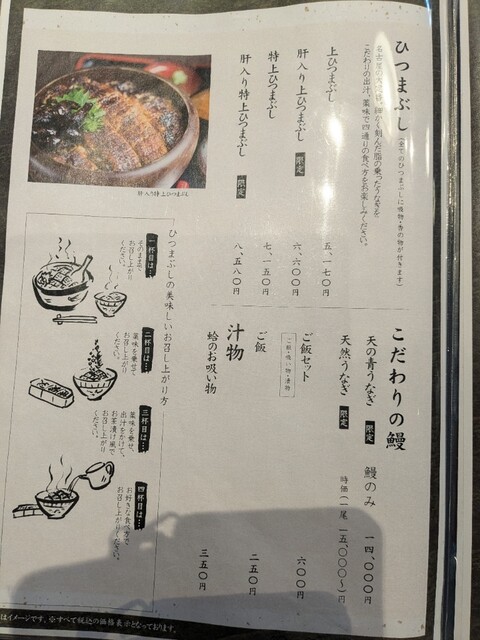 ひつまぶし（全てのひつまぶしに吸物・香の物が付きます）
こだわりの出汁、薬味で四通りの食べ方をお楽しみください。
上ひつまぶし 五、一七〇円
肝入り上ひつまぶし 限定 六、六〇〇円
特上ひつまぶし 七、一五〇円
肝入り特上ひつまぶし 限定 八、五八〇円
肝入り特上ひつまぶし
こだわりの鰻
天の青うなぎ 限定 鰻のみ 一四、〇〇〇円
天然うなぎ 限定 時価（一尾 一五〇〇〇〜）円
ご飯セット 六〇〇円
ご飯・吸い物・漬物
ご飯 二五〇円
汁物
蛤のお吸い物 三五〇円
ひつまぶしの美味しいお召し上がり方
一杯目は…
そのままで
お召し上がり
ください。
二杯目は…
薬味を乗せて
お召し上がり
ください。
三杯目は…
薬味を乗せ、
出汁をかけて、
お茶漬け風で
お召し上がり
ください。
四杯目は…
お好きな食べ方で
お召し上がりください。
はイメージです。※すべて税込の価格表示となっております。